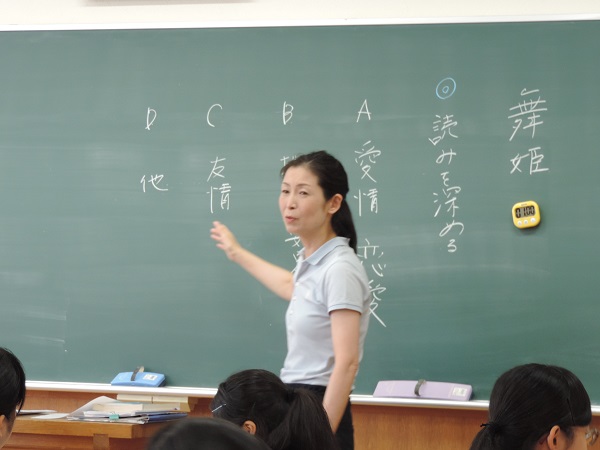 舞姫
◎読みを深める
A 愛情 恋愛
B
C 友情
D 他